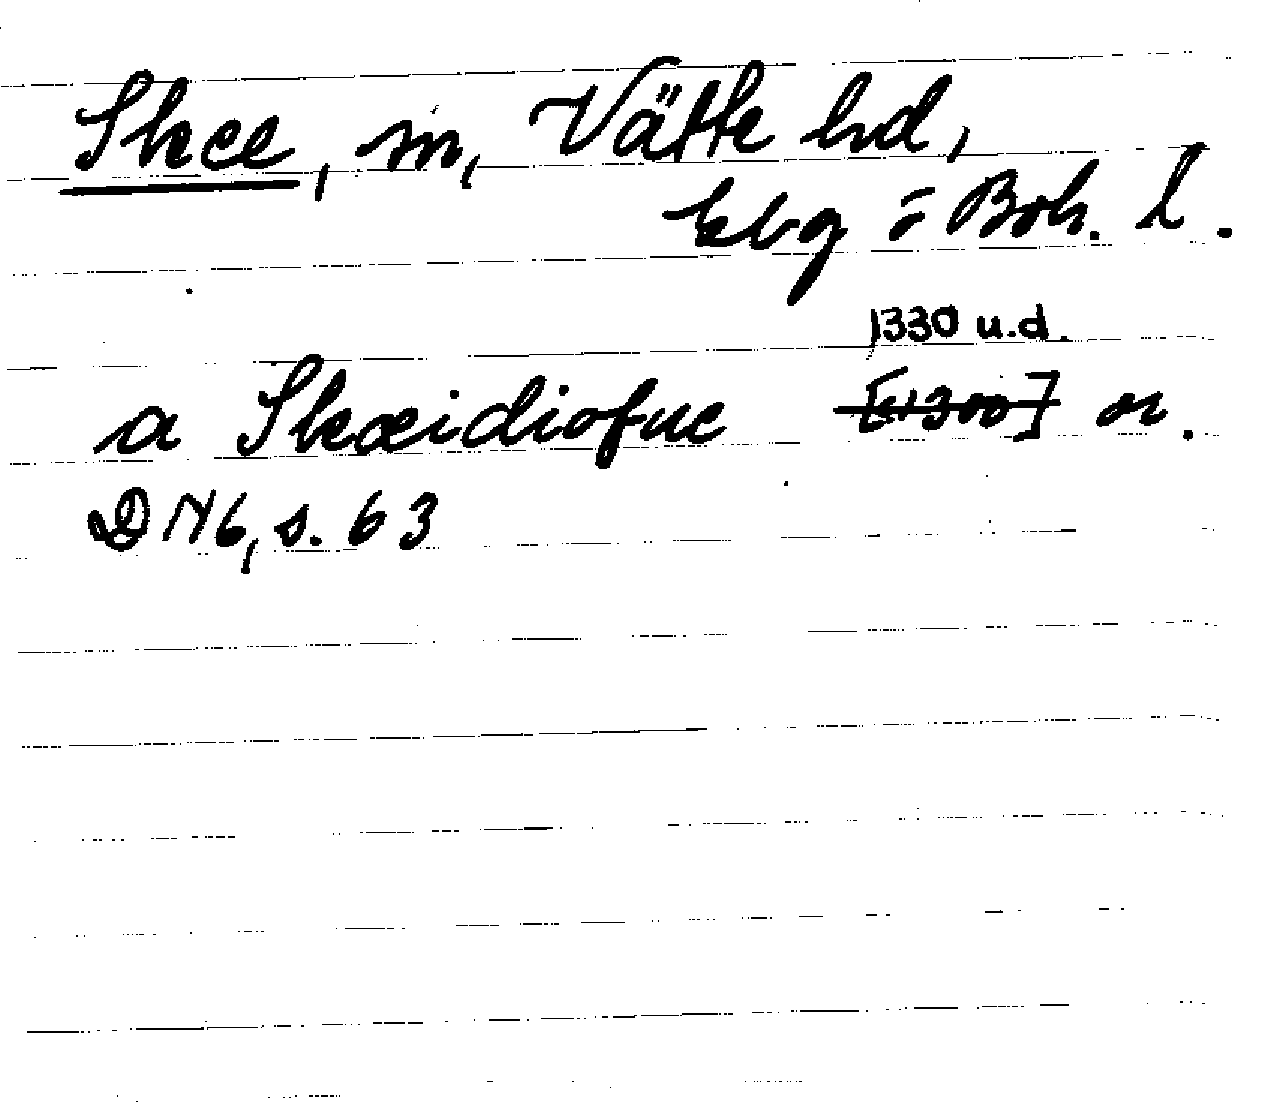 Skee, sn, Vätte hd,
Gbg o Boh. l.
1330 u.d.
a Skæidiofue [c1300] or.
DN6, s. 63